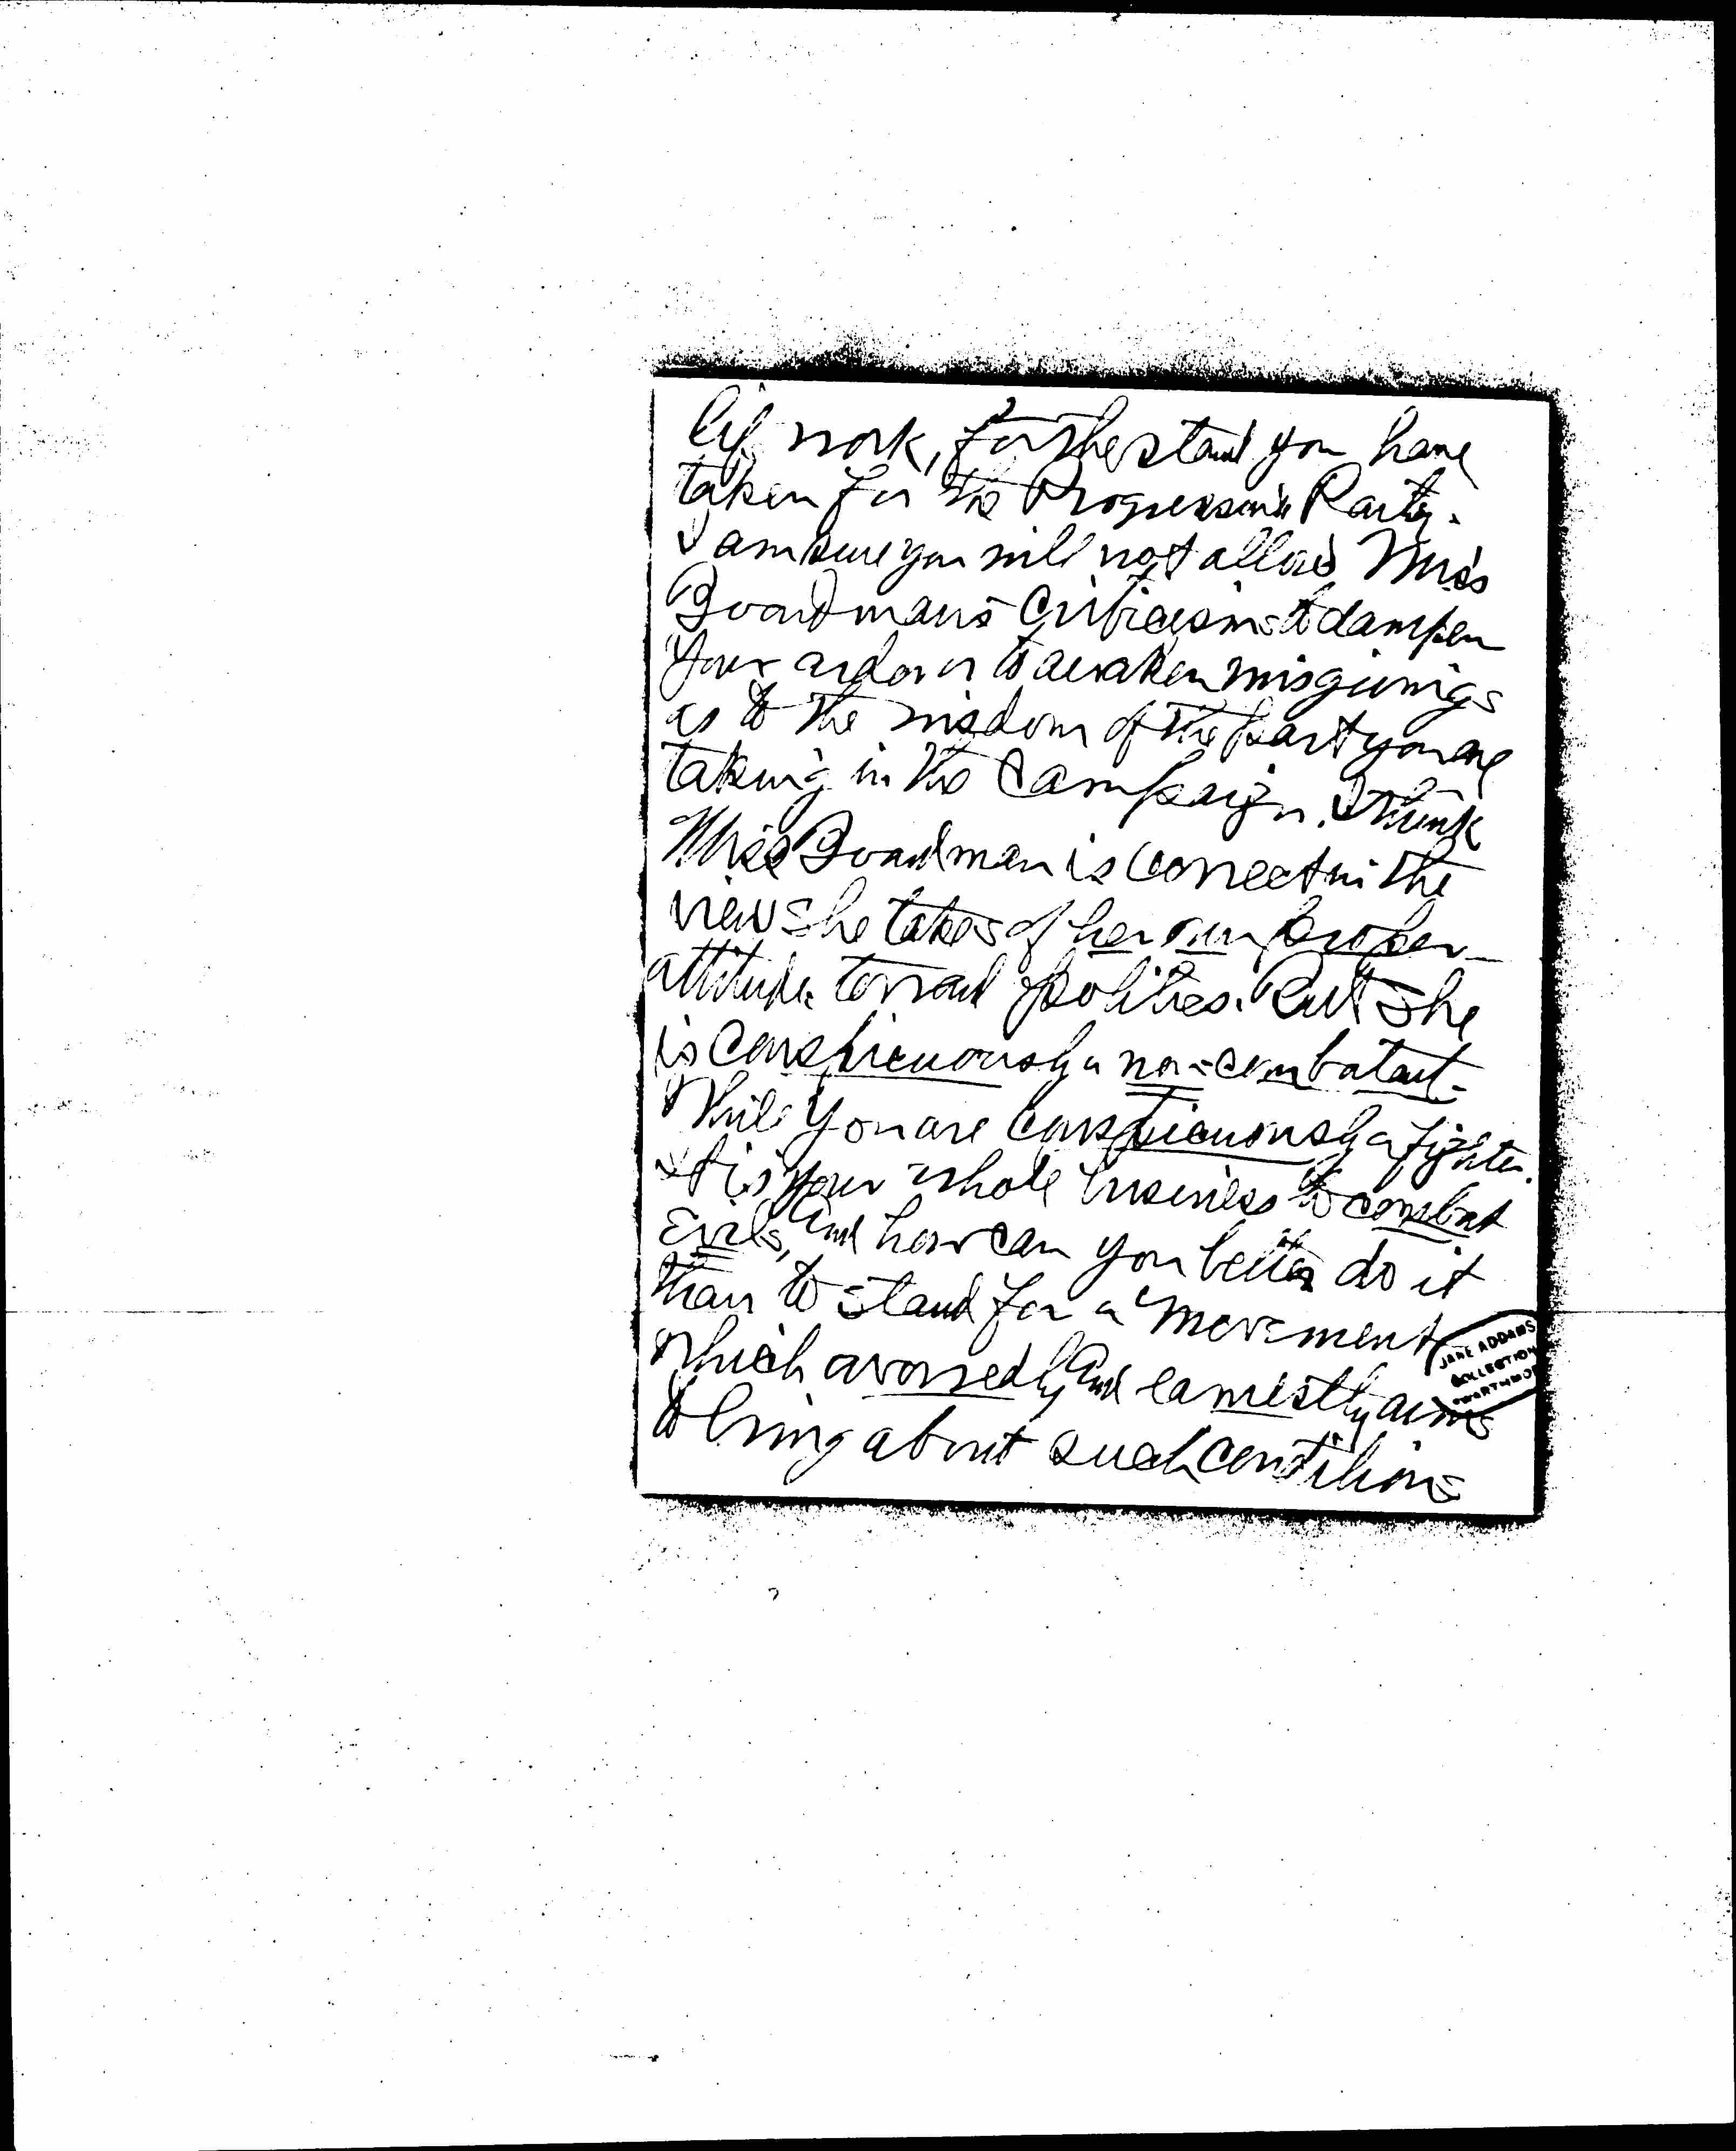 life work, for the stand you have
taken for the Progressive Party.
I am sure you will not allow Miss
Boardman's Criticisms to dampen
your ardor or to awaken misgivings
as to the wisdom of the part you are
taking in the Campaign. I think
Miss Boardman is correct in the
view she takes of her own proper
attitude toward politics. But she
is conspicuously a non-combatant.
While you are conspicuously a fighter.
It is your whole business to combat
Evils, and how can you better do it
than to stand for a movement
which avowedly and earnestly aims
to bring about such conditions
JANE ADDAMS
COLLECTION
SWARTHMO